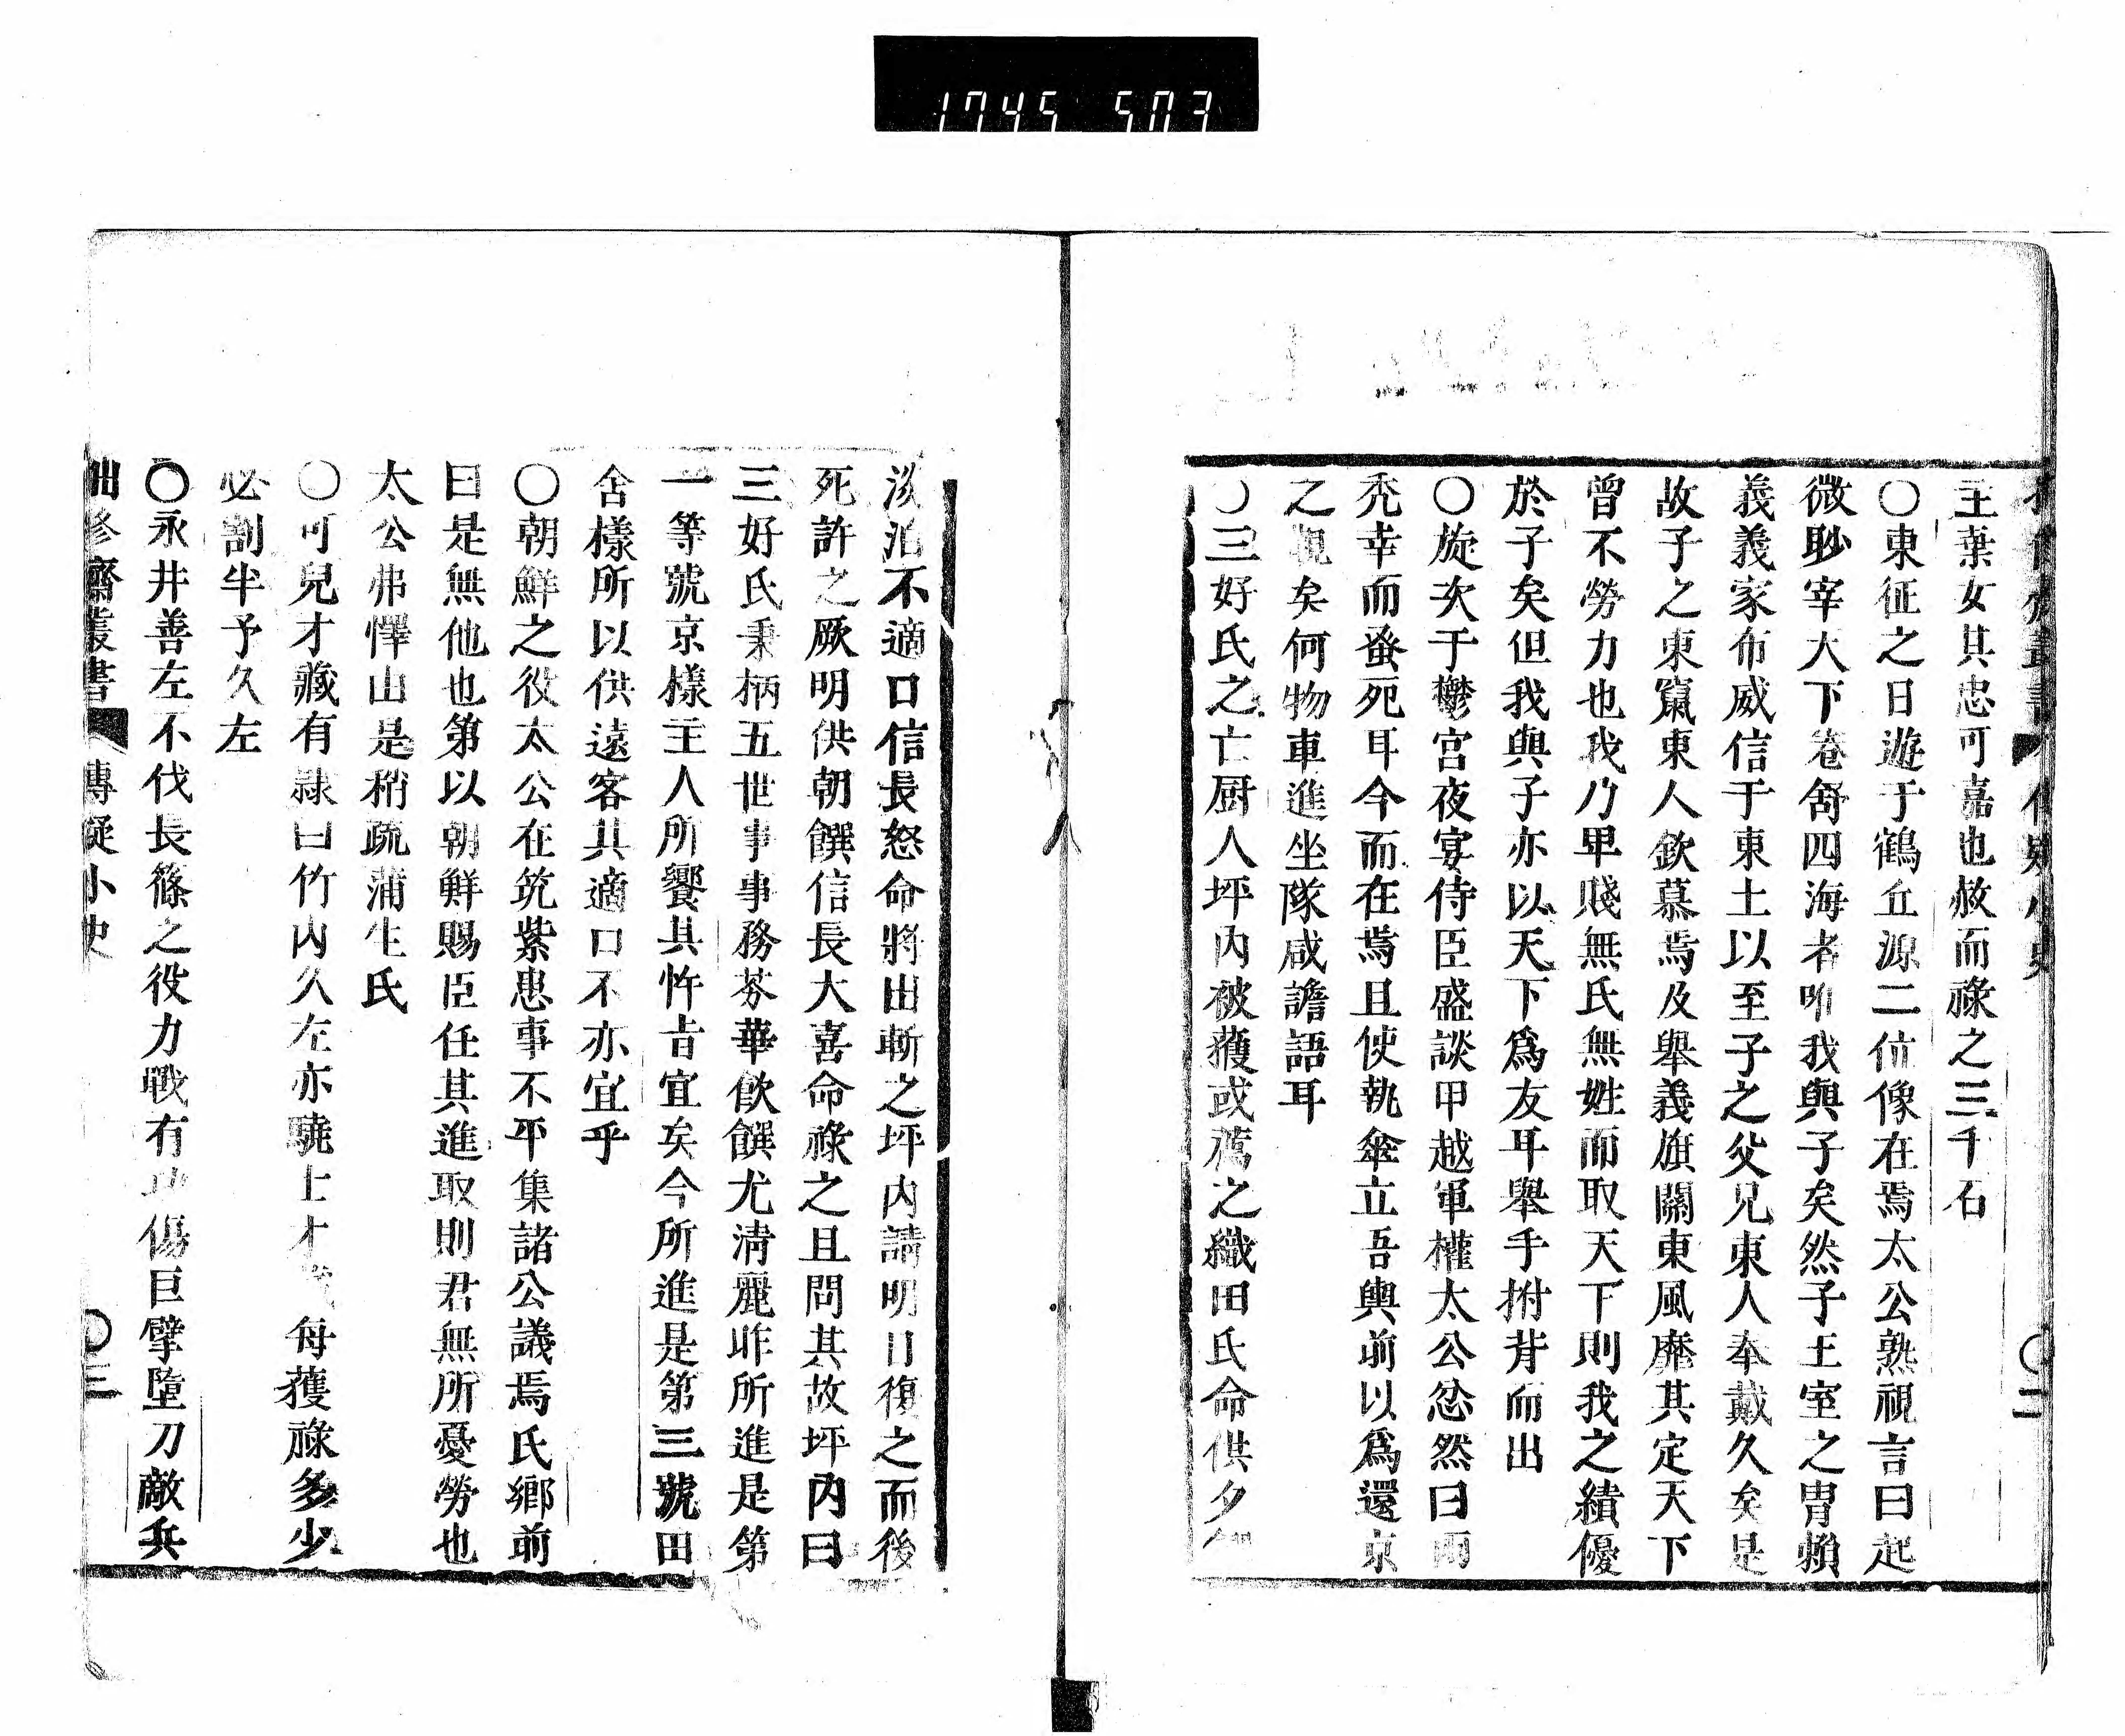 1745 503
傳疑小史
〇二
主棄女其忠可嘉也赦而祿之三千石
〇東征之日遊于鶴丘源二位像在焉太公熟視言曰起
微眇宰天下卷舒四海者唯我與子矣然子王室之胄賴
義義家布威信于東土以至子之父兄東人奉戴久矣是
故子之東竄東人欽慕焉及舉義旗關東風靡其定天下
曾不勞力也我乃卑賤無氏無姓而取天下則我之績優
於子矣但我與子亦以天下爲友耳舉手拊背而出
〇旋次于鬱宮夜宴侍臣盛談甲越軍權太公忿然曰兩
禿幸而蚤死耳今而在焉且使執傘立吾輿前以爲還京
之觀矣何物車進坐隊咸譫語耳
〇三好氏之亡厨人坪內被獲或薦之織田氏命供夕
淡泊不適口信長怒命將出斬之坪內請明日復之而後
死許之厥明供朝饌信長大喜命祿之且問其故坪內曰
三好氏秉柄五世事事務芬華飮饌尤淸麗昨所進是第
一等號京樣主人所饗其忤旨宜矣今所進是第三號田
舍樣所以供遠客其適口不亦宜乎
〇朝鮮之役太公在筑紫患事不平集諸公議焉氏鄉前
曰是無他也第以朝鮮賜臣任其進取則君無所憂勞也
太公弗懌由是稍疏蒲生氏
〇可兒才藏有隷曰竹內久左亦驍士才藏每獲祿多少
必割半予久左
〇永井善左不伐長篠之役力戰有功傷巨擘墮刀敵兵
拙修齋叢書
傳疑小史
〇三